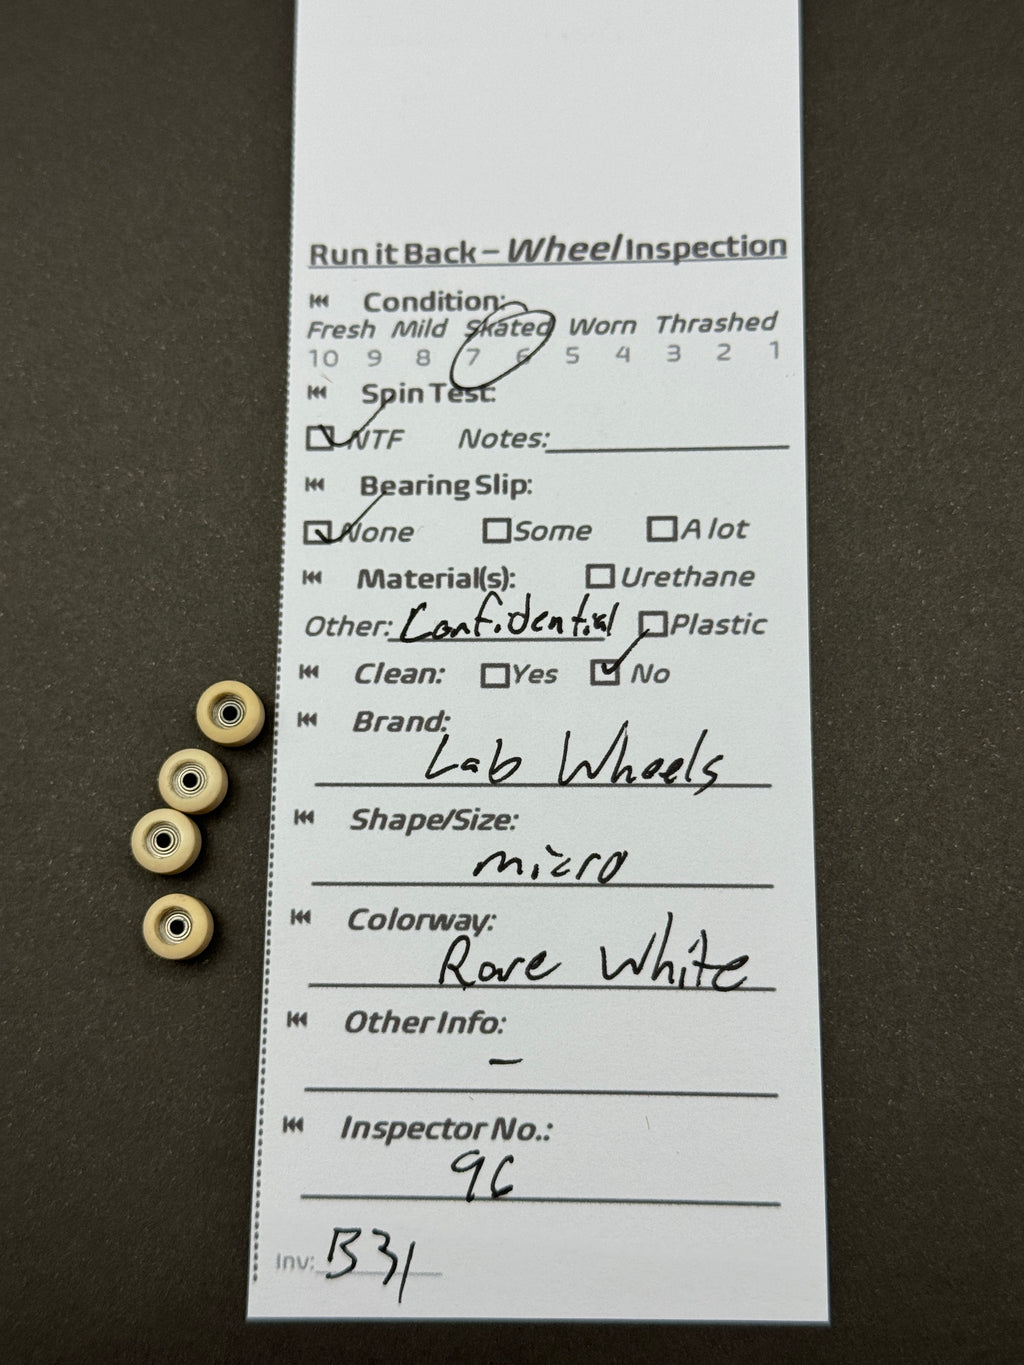 Run it Back – Wheel Inspection
Condition:
Fresh Mild Skated Worn Thrashed
10 9 8 7 6 5 4 3 2 1
Spin Test:
NTF Notes:
Bearing Slip:
None Some A lot
Material(s): Urethane
Other: Confidential Plastic
Clean: Yes No
Brand:
Lab Wheels
Shape/Size:
micro
Colorway:
Rare White
Other Info:
–
Inspector No.:
96
Inv: B31